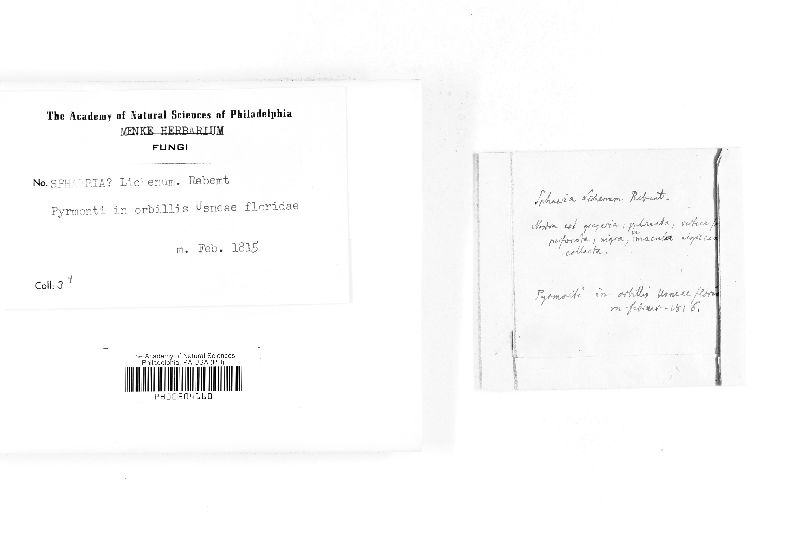 The Academy of Natural Sciences of Philadelphia
MENKE HERBARIUM
FUNGI
No. SPHAERIA? Lichenum. Rabemt
Pyrmonti in orbillis Usneae floridae
m. Feb. 1815
Coll. 3
The Academy of Natural Sciences
Philadelphia, PA USA (PH)
Sphaeria Lichenum Rebent.
est gregaria,
nigra, macula
collecta.
Pyrmonti in orbillis Usneae
m. 1816.